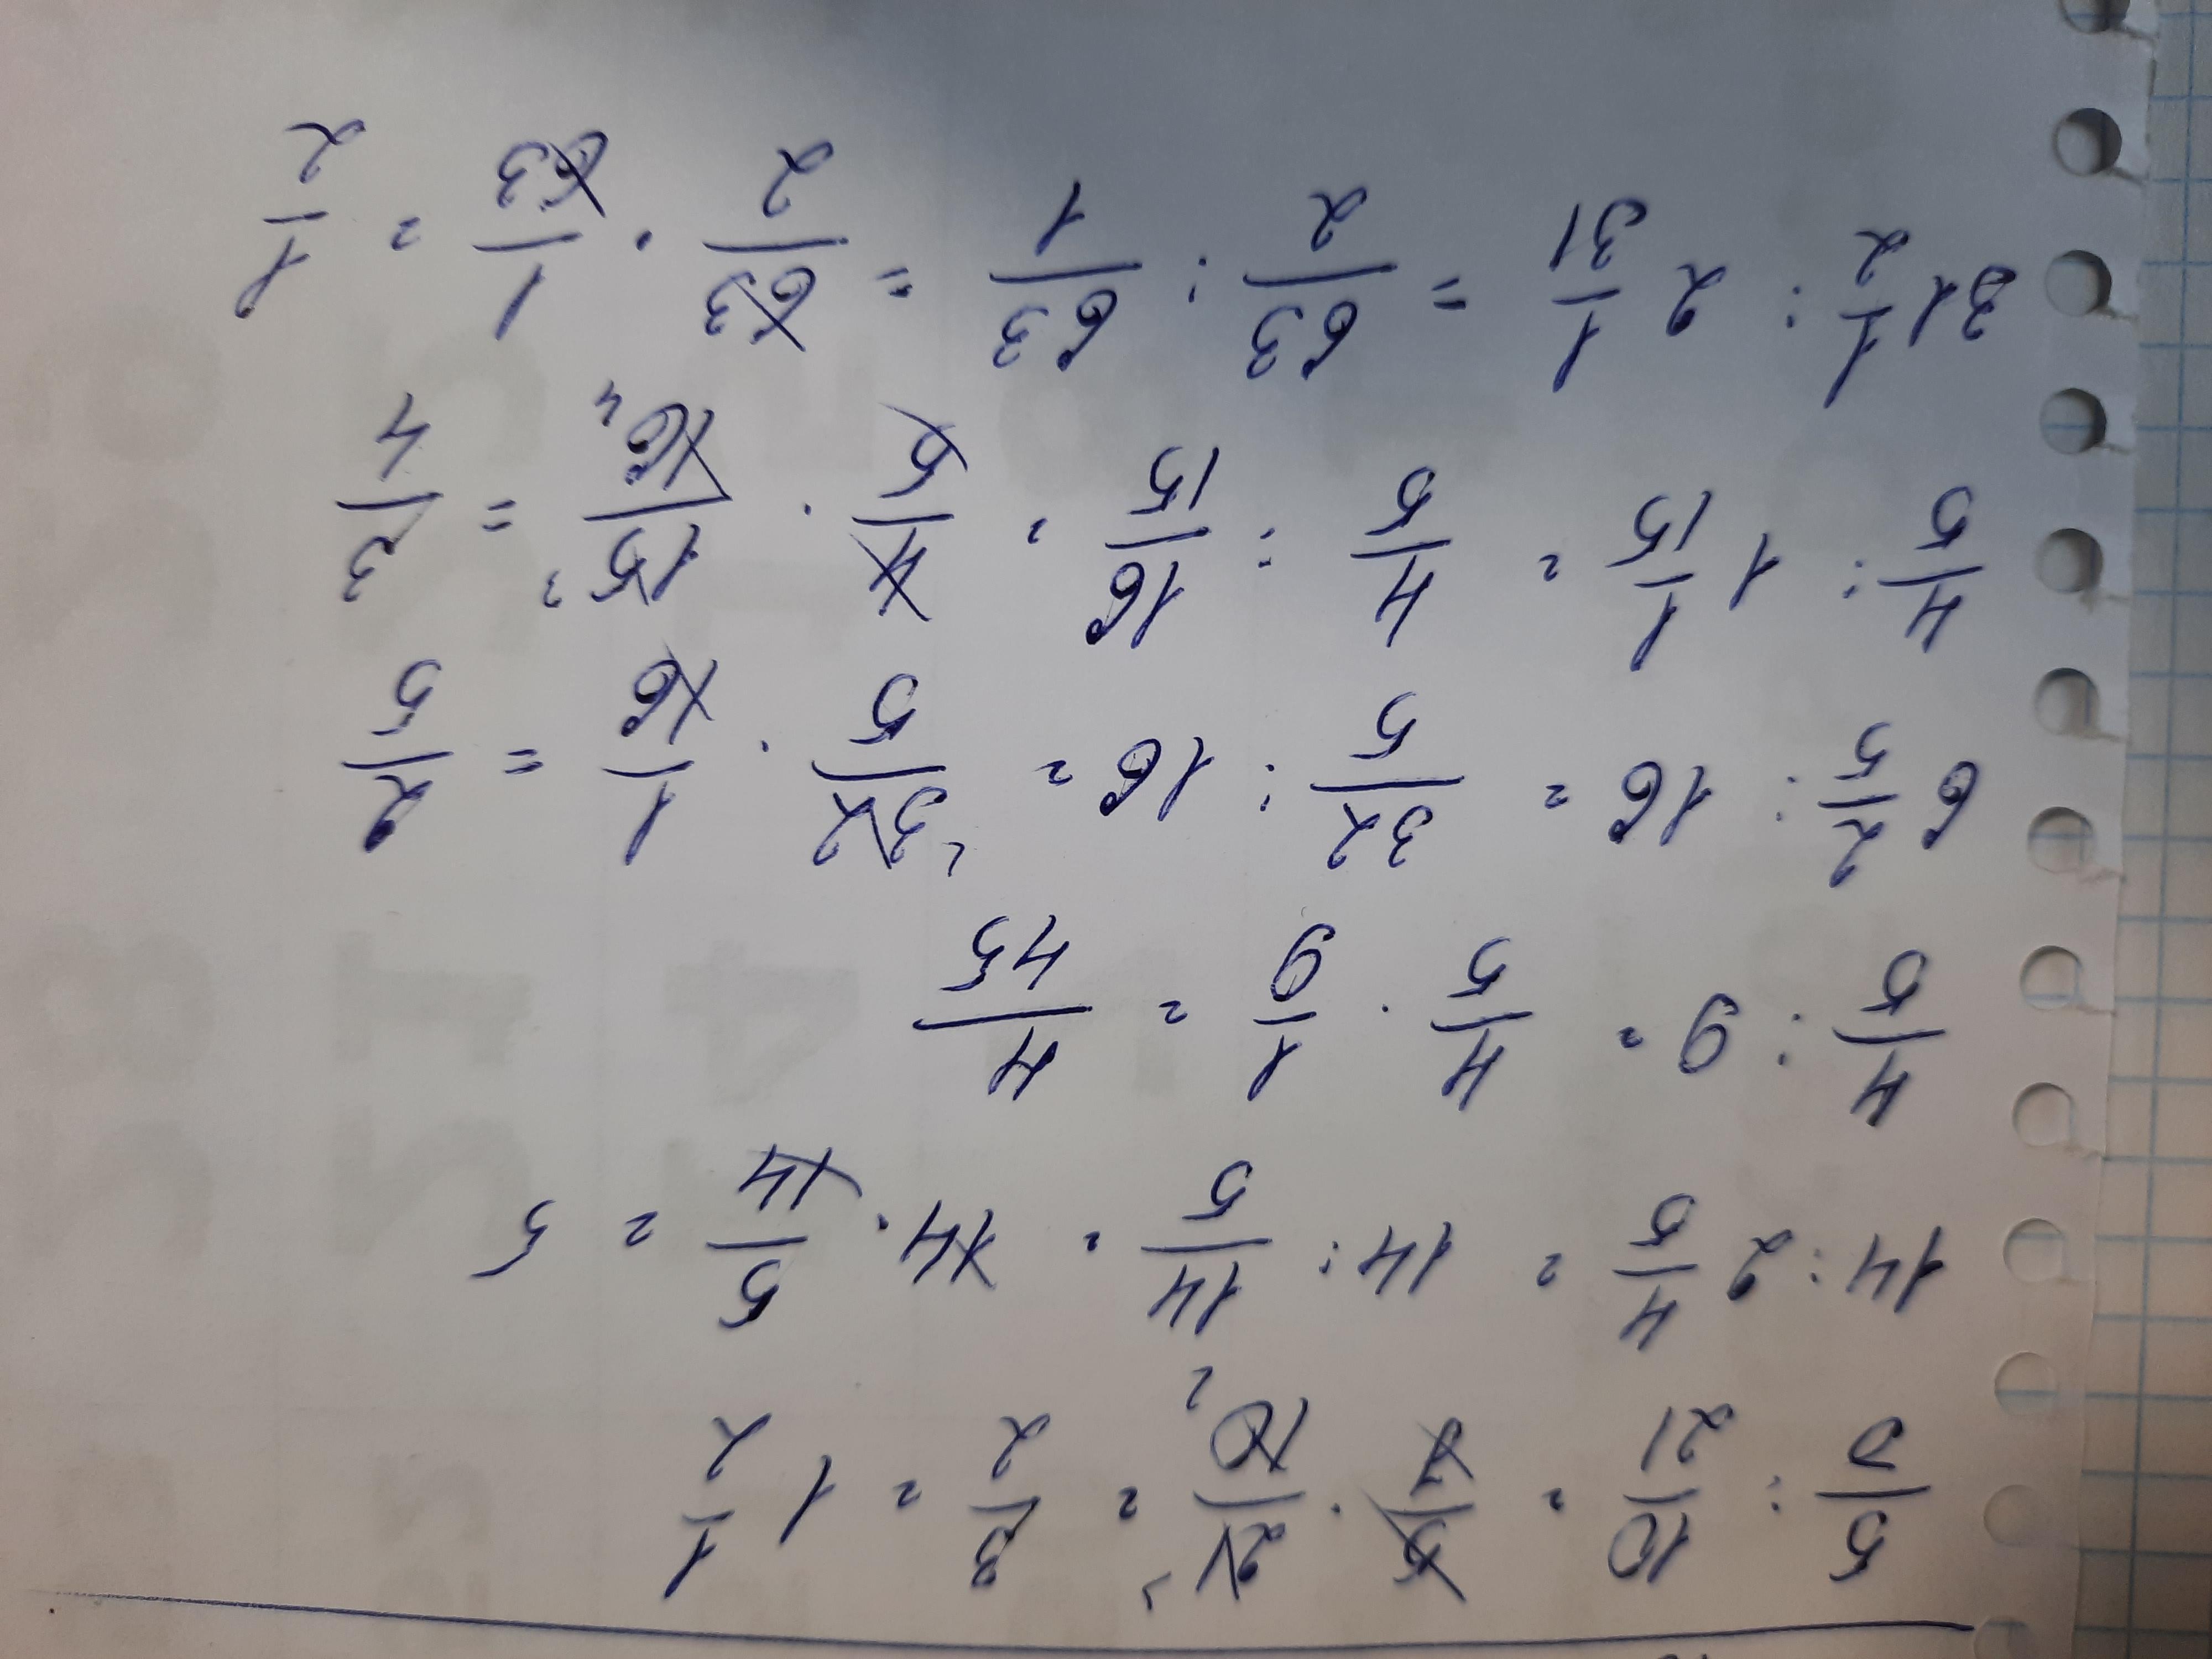 5/ : 10/21 = 5/7 · 21³/10₂ = 3/2 = 1 1/2
14 : 2 4/5 = 14 : 14/5 = 14 · 5/14 = 5
4/5 : 9 = 4/5 · 1/9 = 4/45
6 2/5 : 16 = 32/5 : 16 = ²32/5 · 1/16 = 2/5
4/5 : 1 1/15 = 4/5 : 16/15 = 4/5 · 15³/16₄ = 3/4
31 1/2 : 2 1/31 = 63/2 : 63/1 = 63/2 · 1/63 = 1/2